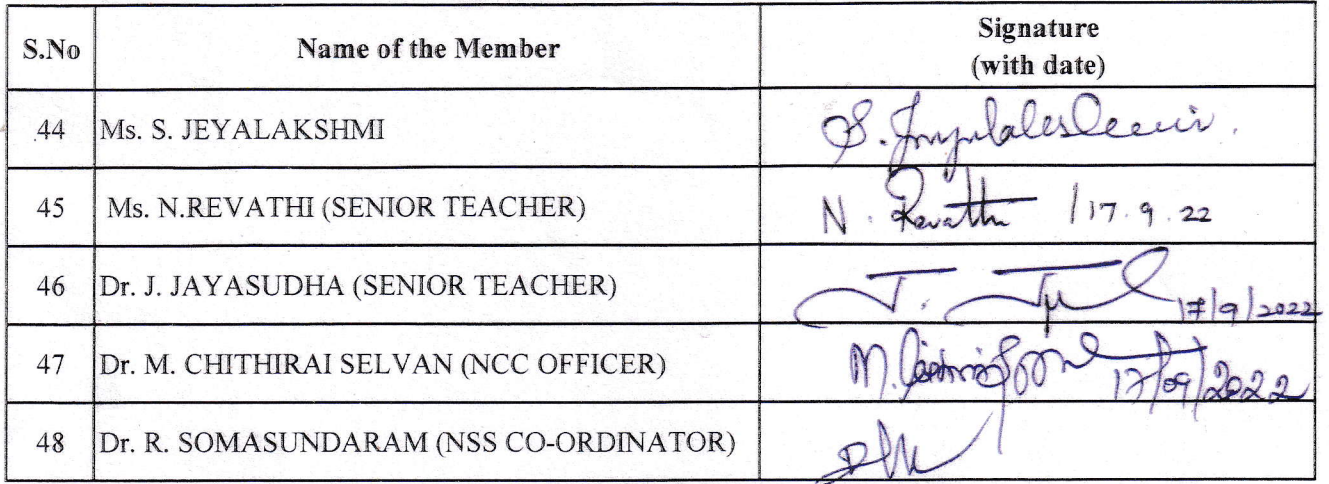 S.No Name of the Member Signature
(with date)
44 Ms. S. JEYALAKSHMI S. Jeyalakshmi.
45 Ms. N.REVATHI (SENIOR TEACHER) N. Revathi /17.9.22
46 Dr. J. JAYASUDHA (SENIOR TEACHER) J. 17/9/2022
47 Dr. M. CHITHIRAI SELVAN (NCC OFFICER) M. 17/09/2022
48 Dr. R. SOMASUNDARAM (NSS CO-ORDINATOR)